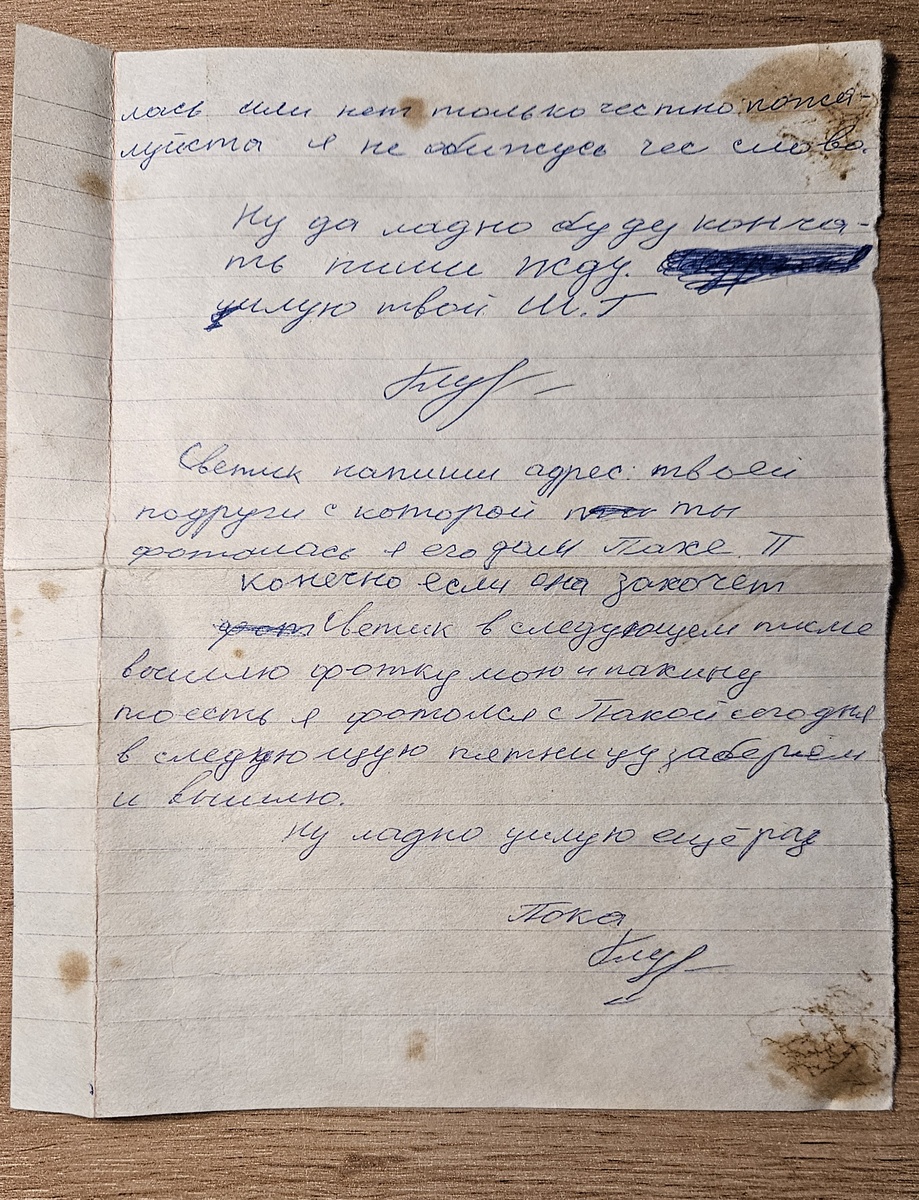 лась или нет только честно пожа-
луйста я не обижусь чес слово.
Ну да ладно буду конча-
ть пиши жду.
цилую твой Ш.Г
Светик напиши адрес твоей
подруги с которой ты
фоталась я его дам Пахе. П
конечно если она захочет
Светик в следующем писме
вышлю фотку мою и пакину
тоесть я фотался с Пахой сегодня
в следующую пятницу заберём
и вышлю.
Ну ладно цилую ещё раз
Пока